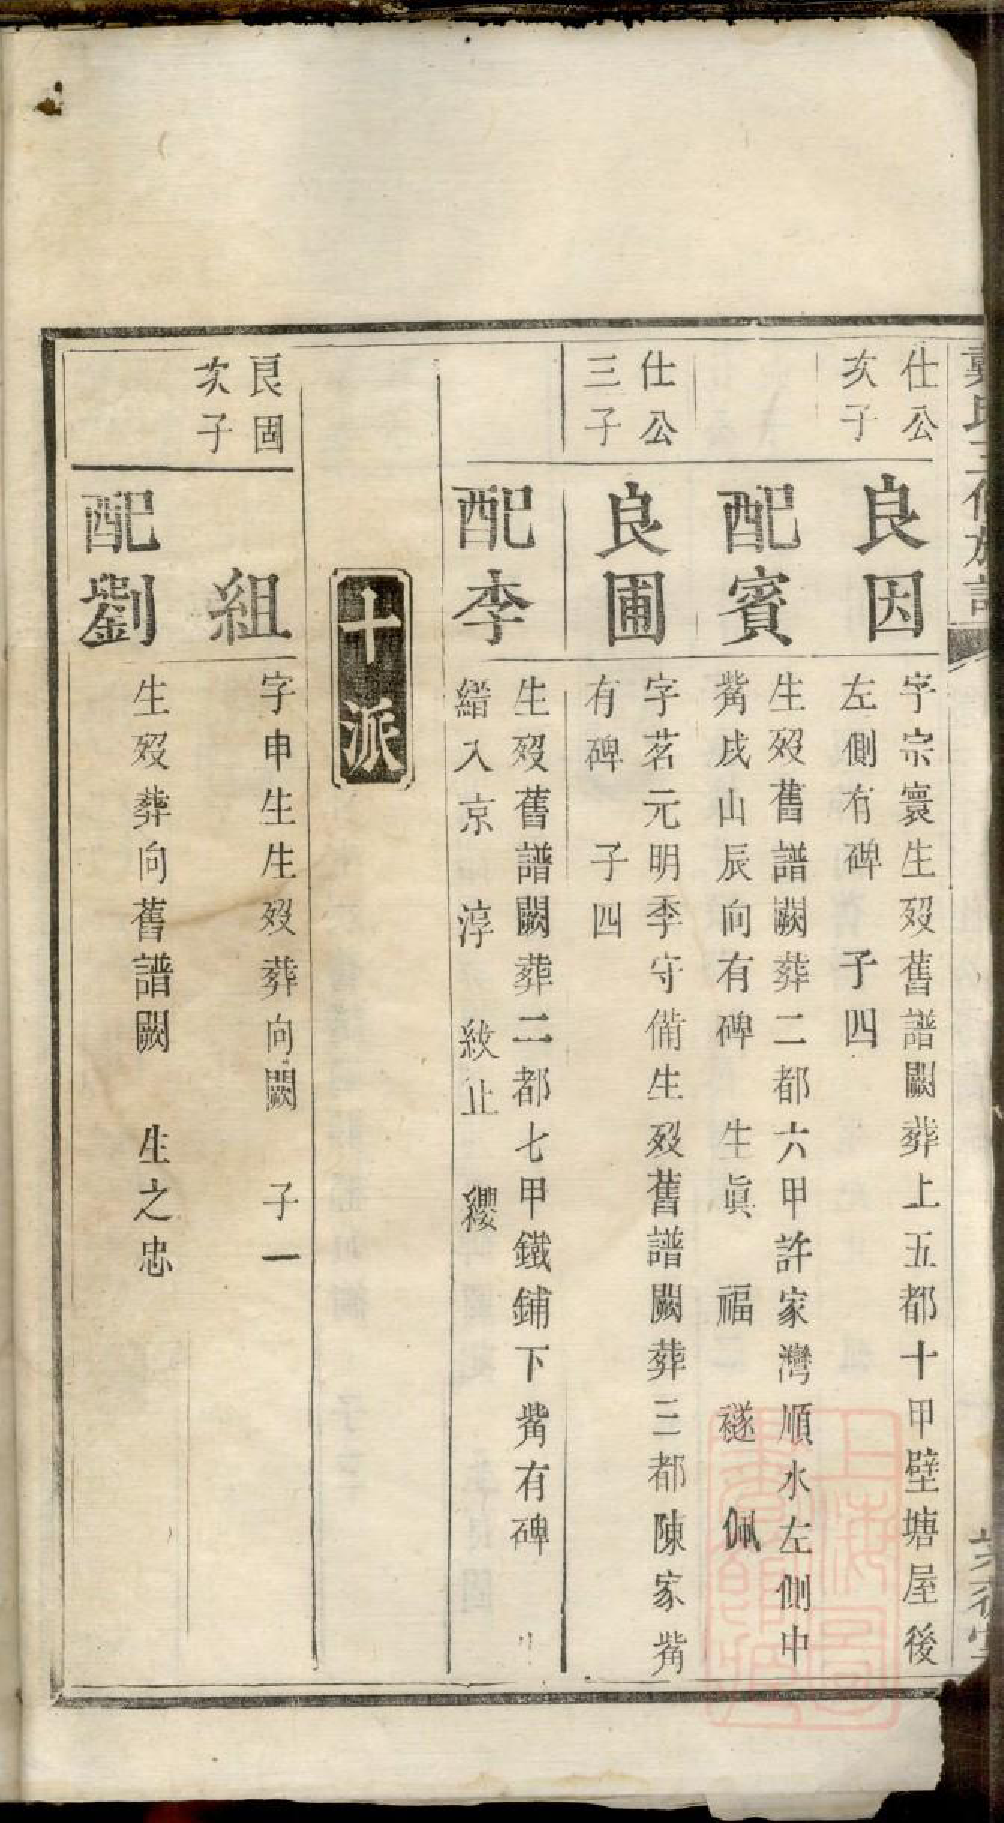 仕公
次子
良因
字宗寰生歿舊譜闕葬上五都十甲壁塘屋後
左側有碑 子四
配賓
生歿舊譜闕葬二都六甲許家灣順水左側中
觜戌山辰向有碑 生眞 福 禭 佩
仕公
三子
良圃
字茗元明季守備生歿舊譜闕葬三都陳家觜
有碑 子四
配李
生歿舊譜闕葬二都七甲鐵鋪下觜有碑
縉入京 淳 紋止 纓
十派
良固
次子
組
字申生生歿葬向闕 子一
配劉
生歿葬向舊譜闕 生之忠